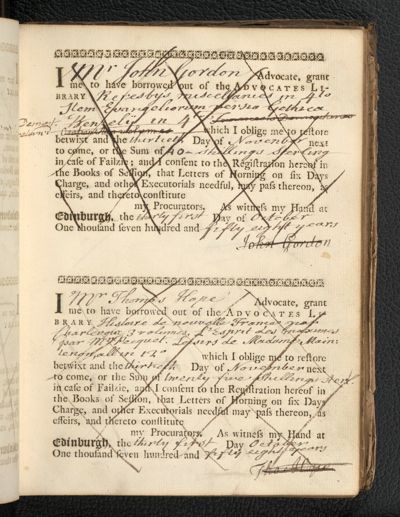 I Mr John Gordon Advocate, grant
me to have borrowed out of the ADVOCATES LY-
BRARY miscellanies in 4to
Item Evangeliorum versio Gothica
in 4to
which I oblige me to restore
betwixt and the thirtieth Day of November next
to come, or the Sum of 40 shillings Sterling
in case of Failzie; and I consent to the Registration hereof in
the Books of Session, that Letters of Horning on six Days
Charge, and other Executorials needful, may pass thereon, as
effeirs, and thereto constitute
my Procurators. As witness my Hand at
Edinburgh, the thirty first Day of October
One thousand seven hundred and fifty eight years
John Gordon
I Mr Thomas Hope Advocate, grant
me to have borrowed out of the ADVOCATES LY-
BRARY Histoire de nouvelle France par
Charlevoix 3 volumes, L'Esprit des
par Mr Pecquet. de Madame Main-
tenon, all in 12o which I oblige me to restore
betwixt and the thirtieth Day of November next
to come, or the Sum of twenty five shillings Sterl.
in case of Failzie, and I consent to the Registration hereof in
the Books of Session, that Letters of Horning on six Days
Charge, and other Executorials needful may pass thereon, as
effeirs, and thereto constitute
my Procurators. As witness my Hand at
Edinburgh, the thirty first Day October
One thousand seven hundred and fifty eight years
Thos Hope